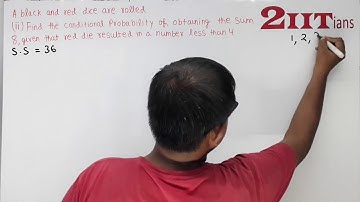 A black and red dice are rolled
(ii) Find the conditional Probability of obtaining the sum
8, given that red die resulted in a number less than 4.
S.S = 36
2IITians
1, 2, 3